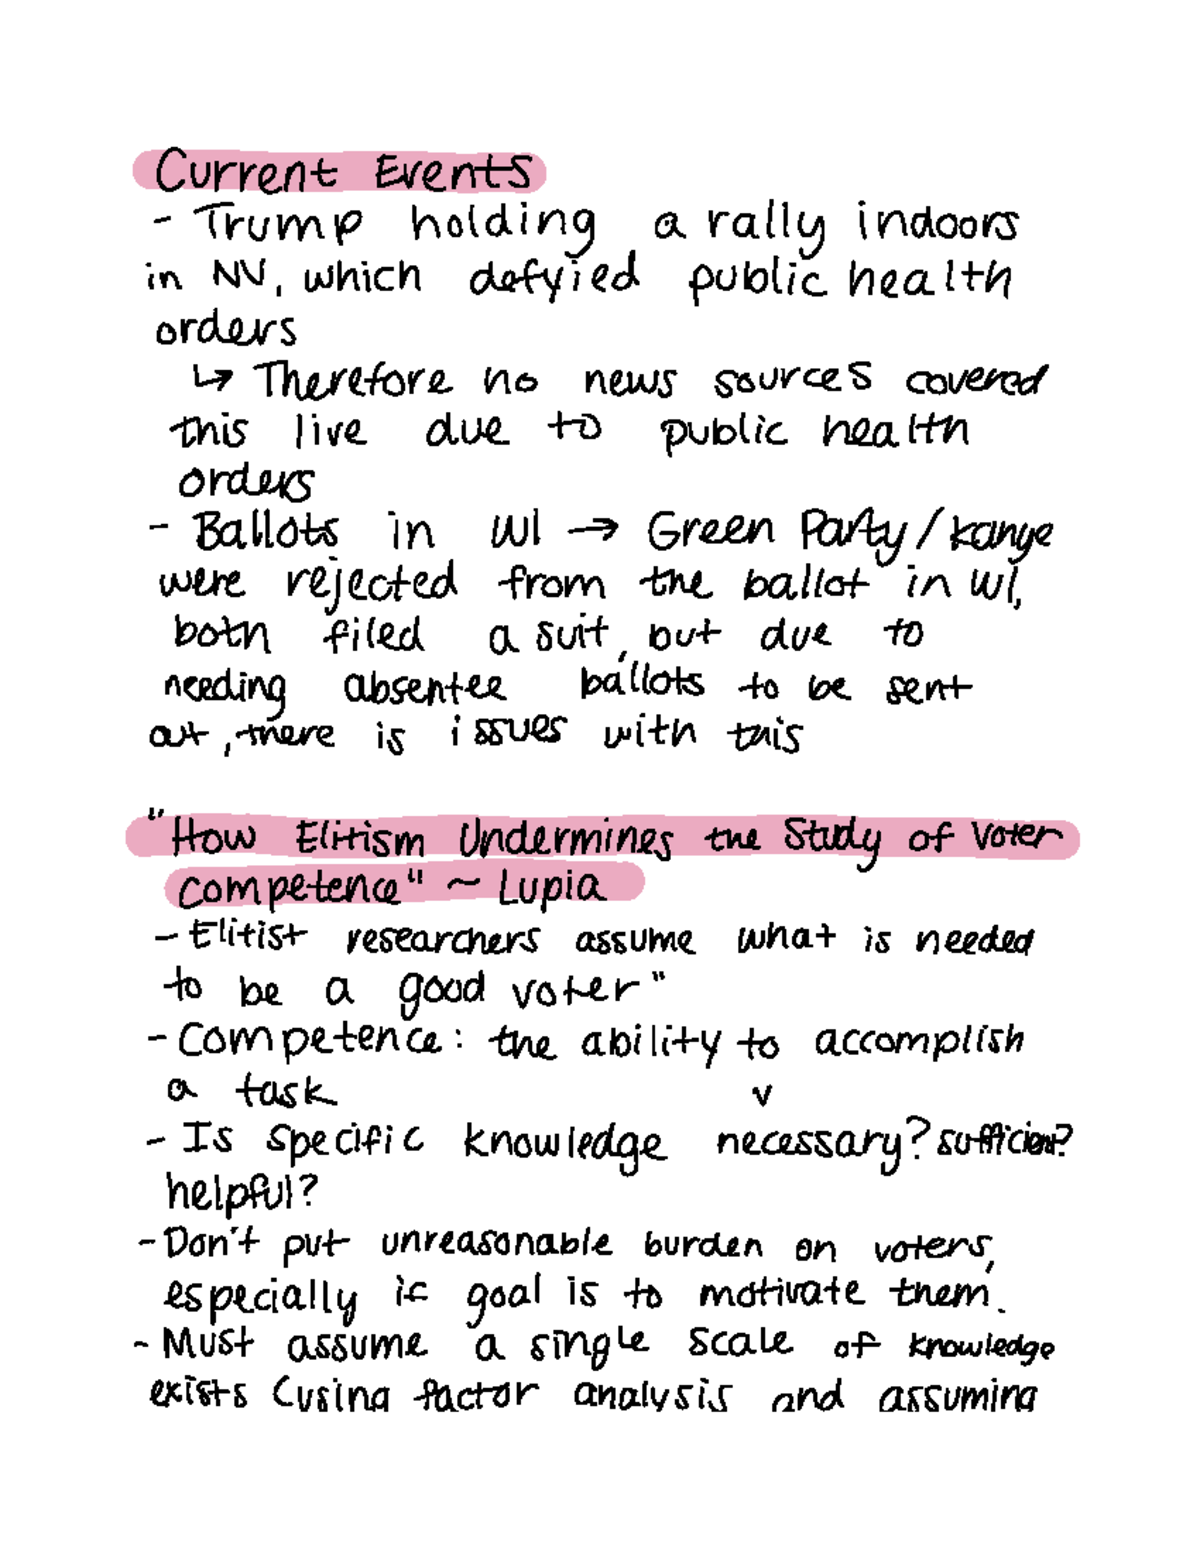 Current Events
- Trump holding a rally indoors
in NV, which defyied public health
orders
↳ Therefore no news sources covered
this live due to public health
orders
- Ballots in WI → Green Party/Kanye
were rejected from the ballot in WI,
both filed a suit, but due to
needing absentee ballots to be sent
out, there is issues with this
"How Elitism Undermines the Study of Voter
Competence" ~ Lupia
- Elitist researchers assume what is needed
to be a good voter"
- Competence: the ability to accomplish
a task
v
- Is specific knowledge necessary? sufficient?
helpful?
- Don't put unreasonable burden on voters,
especially if goal is to motivate them.
- Must assume a single scale of knowledge
exists (using factor analysis and assuming